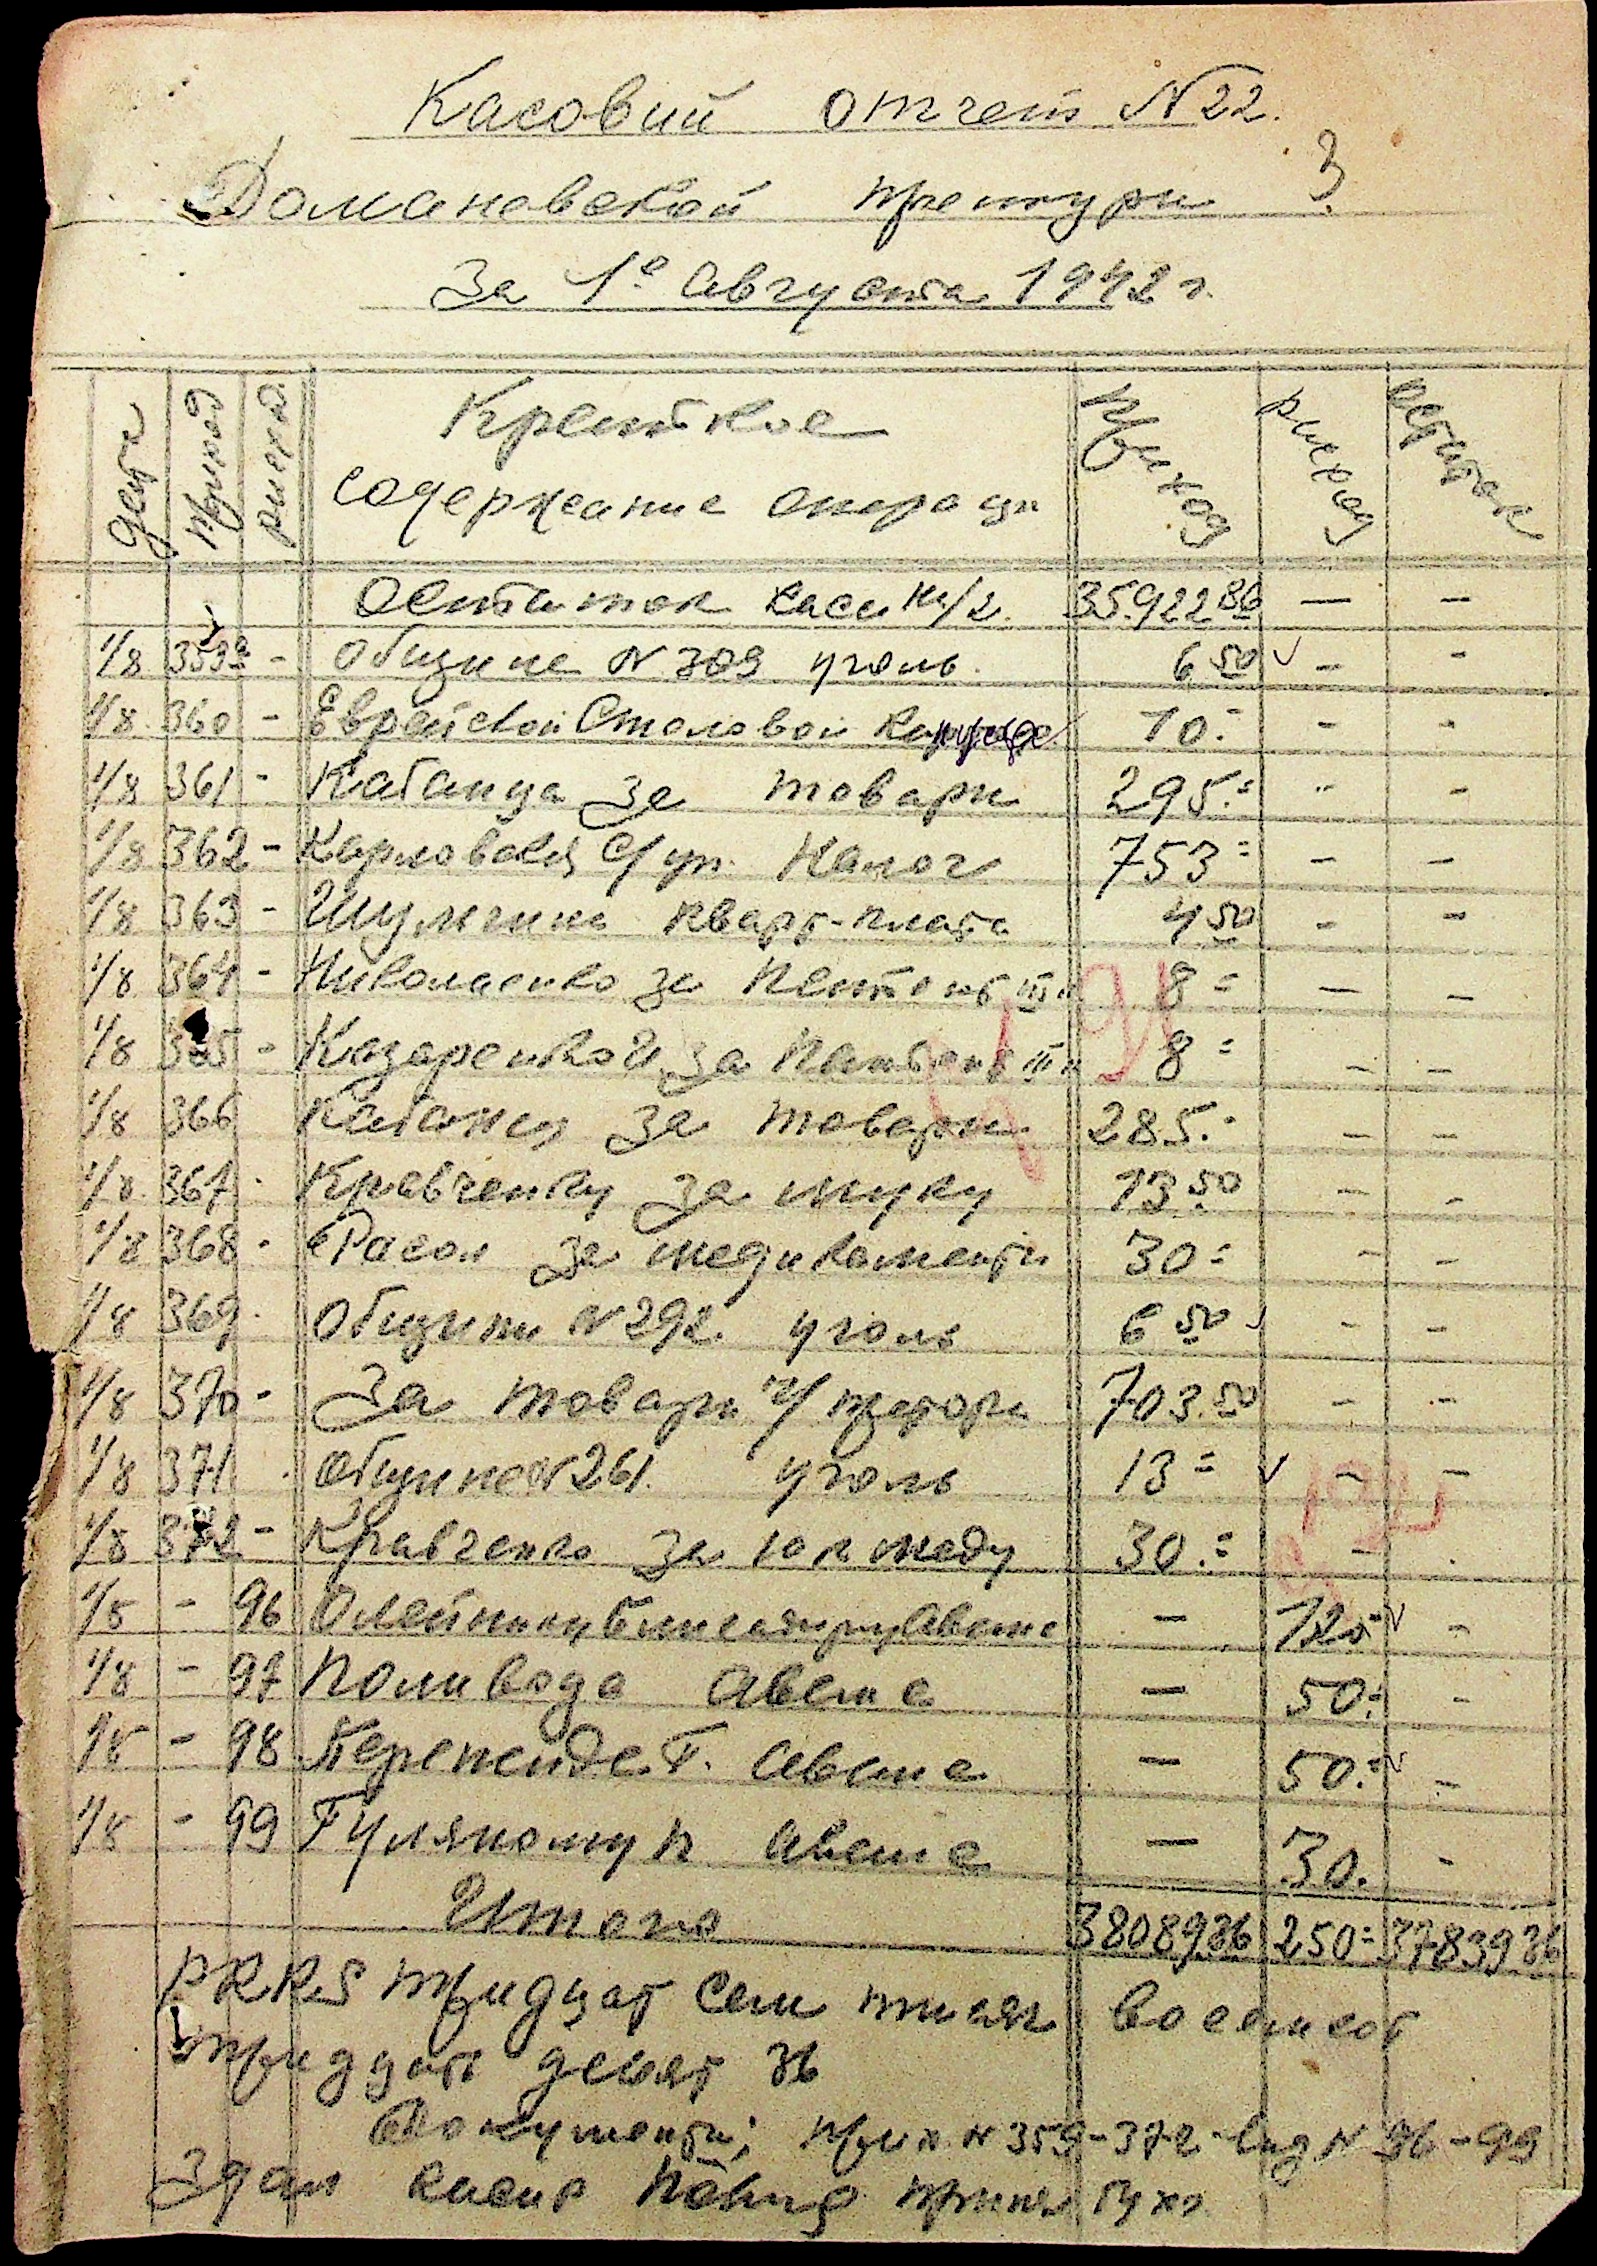 Касовий отчет N 22.
Домановской претури
3
За 1е Августа 1942 г.
Дата приход расход Краткое содержание операци Приход расход остаток
Остаток каси на 1/8. 35922 86 — —
1/8 359 - Общине N 309 уголь. 6 50 - -
1/8 360 - Еврейской Столовой 10.- - -
1/8 361 - Кабанця за товари 295.= - -
1/8 362 - Карловская С/уп. Налог 753= - -
1/8 363 - Шулжина кварт-плата 4 50 - -
1/8 364 - Николаенко за 8= — -
1/8 365 - Казаренко за 8= - -
1/8 366 за товари 285.- - -
1/8 367 - Кравченку за муку 13 50 - -
1/8 368 - за медикаменти 30= - -
1/8 369 - Общини N 292. уголь 6 50 - -
1/8 370 - За товари претори 703.50 - -
1/8 371 Общине N 261. уголь 13= - -
1/8 372 - Кравченко за меду 30.= -
1/8 - 96 Олейнику Аванс — 120= -
1/8 - 97 Поливода Аванс — 50.= -
1/8 - 98 Г. Аванс — 50.= -
1/8 - 99 Аванс — 30. -
Итого 38089 36 250= 37839 36
РККS тридцат сем тисяч восемсот
тридцать девят 36
Документи; прих N 359-372- вид N 96-99
Здал касир принял